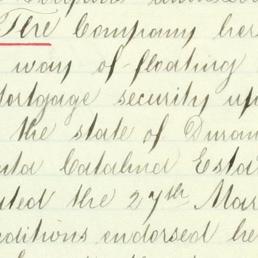 The Company her
way of floating
ortgage security up
the state of Duran
nta Catalina Esta
ted the 27th Mar
ditions endorsed he